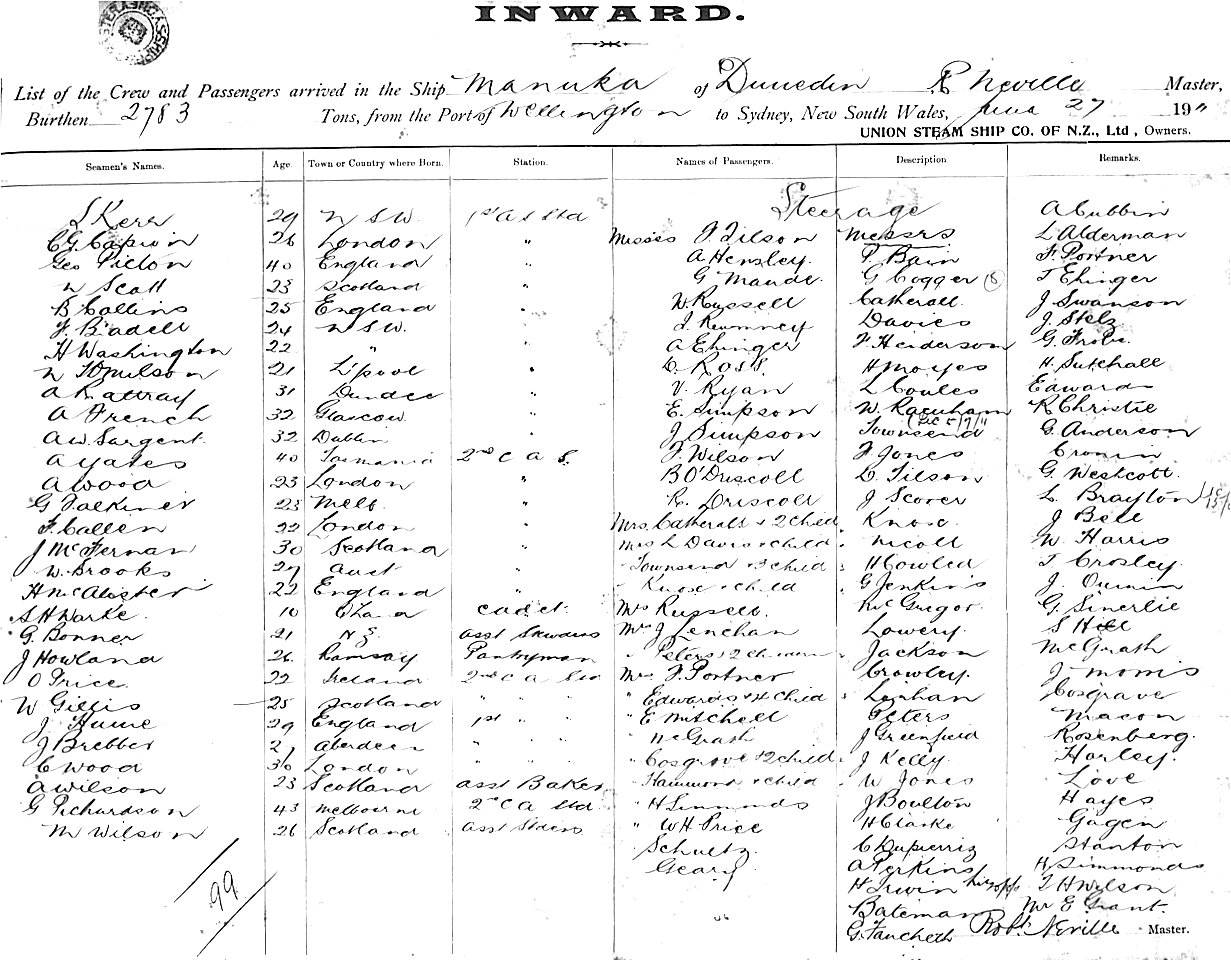 INWARD.
List of the Crew and Passengers arrived in the Ship Manuka of Dunedin R Neville Master,
Burthen 2783 Tons, from the Port of Wellington to Sydney, New South Wales, June 27 1911
UNION STEAM SHIP CO. OF N.Z., Ltd, Owners.
Seamen's Names. Age. Town or Country where Born. Station. Names of Passengers. Description. Remarks.
Steerage
L Kerr 29 N S W. 1st A S Std A Cubbin
C.G. Capron 26 London " Misses F. Tilson Messrs L Alderman
Geo Picton 40 England " A Hensley. P. Bain F. Portner
N Scott 23 Scotland " G Maude. G Cogger (8) T Ehinger
B Collins 25 England " W Russell Catherall. J Swanson
F. Badell 24 N SW. " J. Rumney Davies J. Stelz
H Washington 22 " " A Ehinger F Henderson G.
N 21 L'pool " D Ross. H Moyes H. Sutchall
A Rattray 31 Dundee " V. Ryan L Coules Edwards
A French 32 Glascow " E. Simpson W. Rarnham R Christie
A W Sargent. 32 Dublin " J Simpson Townsend G. Anderson
A Yates 40 Tasmania 2nd C A S. F. Wilson F Jones Cronin
A Wood 23 London " B O'Driscoll C. Tilson G. Westcott.
G Falkiner 23 Melb. " R. Driscoll J Scorer L. Brayton
F. Callen 22 London " Mrs. Catherall & 2 Child. Knox. J Bell
J McFernan 30 Scotland " Mrs L Davis & child. Nicoll W Harris
W. Brooks 27 Aust " Townsend & 3 child. H Cowled T Crosley.
H McAlister 22 England " Knox & child G Jenkins J. Quinin
S H Warke. 10 cadet. Mrs Russell. McGregor. G. Sinerlie
G. Bonner 21 N Z asst Stewards Mrs J Lenehan Lowery. S Hill
J Howland 26 Ramsay Pantryman " Peters & 2 children Jackson McGrath
O Price. 22 Ireland 2nd C A Std Mrs F. Portner Crowley. J Morris
W Gillis 25 Scotland " " " " Edwards & 4 Child. Lenhan Cosgrave
J. Hume 29 England 1st " " " E Mitchell Peters Mason
J Brebber 21 Aberdeen " " " " McGrath J Greenfield Rosenberg.
C Wood 30 London " " " " Cosgrove & 2 child. J Kelly Harley.
A Wilson 23 Scotland asst Baker " Hammond & child W Jones Love
G Richardson 43 Melbourne 2nd C A Std " H Simmonds J Boulton Hayes
M Wilson 26 Scotland asst Stders " W H Price H Clarke Gagen
Schultz C Dupierriz Stanton
Geary A Perkins H Simmonds
99 H Irwin T H Wilson
Bateman Mr E Grant.
G. Faucheth Robt. Neville Master.